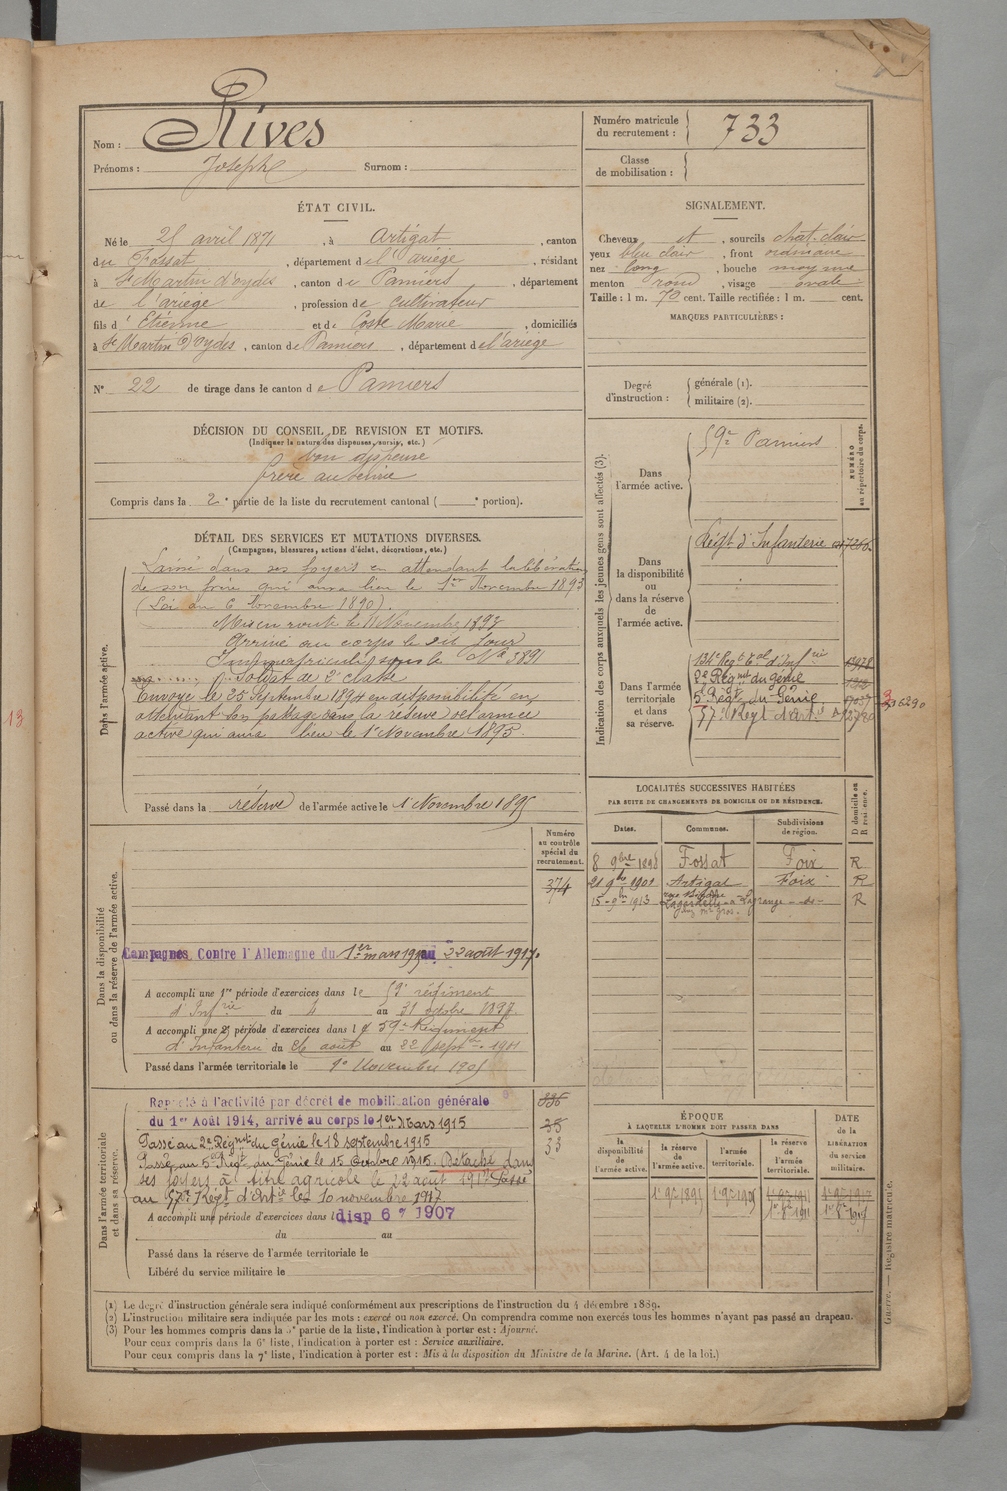 Nom : Rives
Prénoms : Joseph Surnom :
Numéro matricule
du recrutement : 733
Classe
de mobilisation :
ÉTAT CIVIL.
Né le 25 avril 1871, à Artigat, canton
du Fossat, département de l'ariège, résidant
à St Martin d'oydes, canton de Pamiers, département
de l'ariège, profession de cultivateur
fils d'Etienne et de Coste Marie, domiciliés
à St Martin d'Oydes, canton de Pamiers, département de l'ariège
N° 22 de tirage dans le canton de Pamiers
SIGNALEMENT.
Cheveux et, sourcils chat. clair
yeux bleu clair, front ordinaire
nez long, bouche moyenne
menton rond, visage ovale
Taille : 1 m. 70 cent. Taille rectifiée : 1 m. cent.
MARQUES PARTICULIÈRES :
Degré
d'instruction :
générale (1).
militaire (2).
DÉCISION DU CONSEIL DE REVISION ET MOTIFS.
(Indiquer la nature des dispenses, sursis, etc.)
bon dispensé
frère au service
Compris dans la 2e partie de la liste du recrutement cantonal ( e portion).
DÉTAIL DES SERVICES ET MUTATIONS DIVERSES.
(Campagnes, blessures, actions d'éclat, décorations, etc.)
Dans l'armée active.
Laissé dans ses foyers en attendant la libération
de son frère qui aura lieu le 1er Novembre 1893
(Loi du 6 Novembre 1890).
Mis en route le 11 Novembre 1893
Arrivé au corps le dit jour
Immatriculé sous le No 3891
Soldat de 2e classe
Envoyé le 25 Septembre 1894 en disponibilité en
attendant son passage dans la réserve de l'armée
active qui aura lieu le 1er Novembre 1895.
Passé dans la réserve de l'armée active le 1er Novembre 1895
Indication des corps auxquels les jeunes gens sont affectés (3).
NUMÉRO
au répertoire du corps.
Dans
l'armée active.
59e Pamiers
Dans
la disponibilité
ou
dans la réserve
de
l'armée active.
Régt d'Infanterie
Dans l'armée
territoriale
et dans
sa réserve.
134e Régt Tal d'Infrie
2e Régmt du génie
5e Régt du Génie
57e Régt d'Art.
13
LOCALITÉS SUCCESSIVES HABITÉES
PAR SUITE DE CHANGEMENTS DE DOMICILE OU DE RÉSIDENCE.
D domicile ou
R résidence.
Dates. Communes. Subdivisions
de région.
8 9bre 1898 Fossat Foix R
21 9bre 1901 Artigat Foix R
15-9bre 1913 R
Dans la disponibilité
ou dans la réserve de l'armée active.
Numéro
au contrôle
spécial du
recrutement.
374
Campagnes Contre l'Allemagne du 1er mars 1915 au 22 août 1917.
A accompli une 1re période d'exercices dans le 59e régiment
d'Infrie du 4 au 31 octobre 1897
A accompli une 2e période d'exercices dans le 59e Régiment
d'Infanterie du 26 août au 22 septre 1901
Passé dans l'armée territoriale le 1er Novembre 1905
Dans l'armée territoriale
et dans sa réserve.
Rappelé à l'activité par décret de mobilisation générale
du 1er Août 1914, arrivé au corps le 1er Mars 1915
Passé au 2e Régmt du Génie le 18 septembre 1915
Passé au 5e Régt du Génie le 15 Octobre 1915. Détaché dans
ses foyers à titre agricole le 22 août 1917 Passé
au 57e Régt d'Artie le 10 novembre 1917
A accompli une période d'exercices dans l disp 6 7 1907
du au
Passé dans la réserve de l'armée territoriale le
Libéré du service militaire le
33
ÉPOQUE
À LAQUELLE L'HOMME DOIT PASSER DANS
DATE
de la
LIBÉRATION
du service
militaire.
la
disponibilité
de
l'armée active.
la réserve
de
l'armée active.
l'armée
territoriale.
la réserve
de
l'armée
territoriale.
1er 9bre 1895 1er 9bre 1905
Guerre. — Registre matricule.
(1) Le degré d'instruction générale sera indiqué conformément aux prescriptions de l'instruction du 4 décembre 1889.
(2) L'instruction militaire sera indiquée par les mots : exercé ou non exercé. On comprendra comme non exercés tous les hommes n'ayant pas passé au drapeau.
(3) Pour les hommes compris dans la 5e partie de la liste, l'indication à porter est : Ajourné.
Pour ceux compris dans la 6e liste, l'indication à porter est : Service auxiliaire.
Pour ceux compris dans la 7e liste, l'indication à porter est : Mis à la disposition du Ministre de la Marine. (Art. 4 de la loi.)